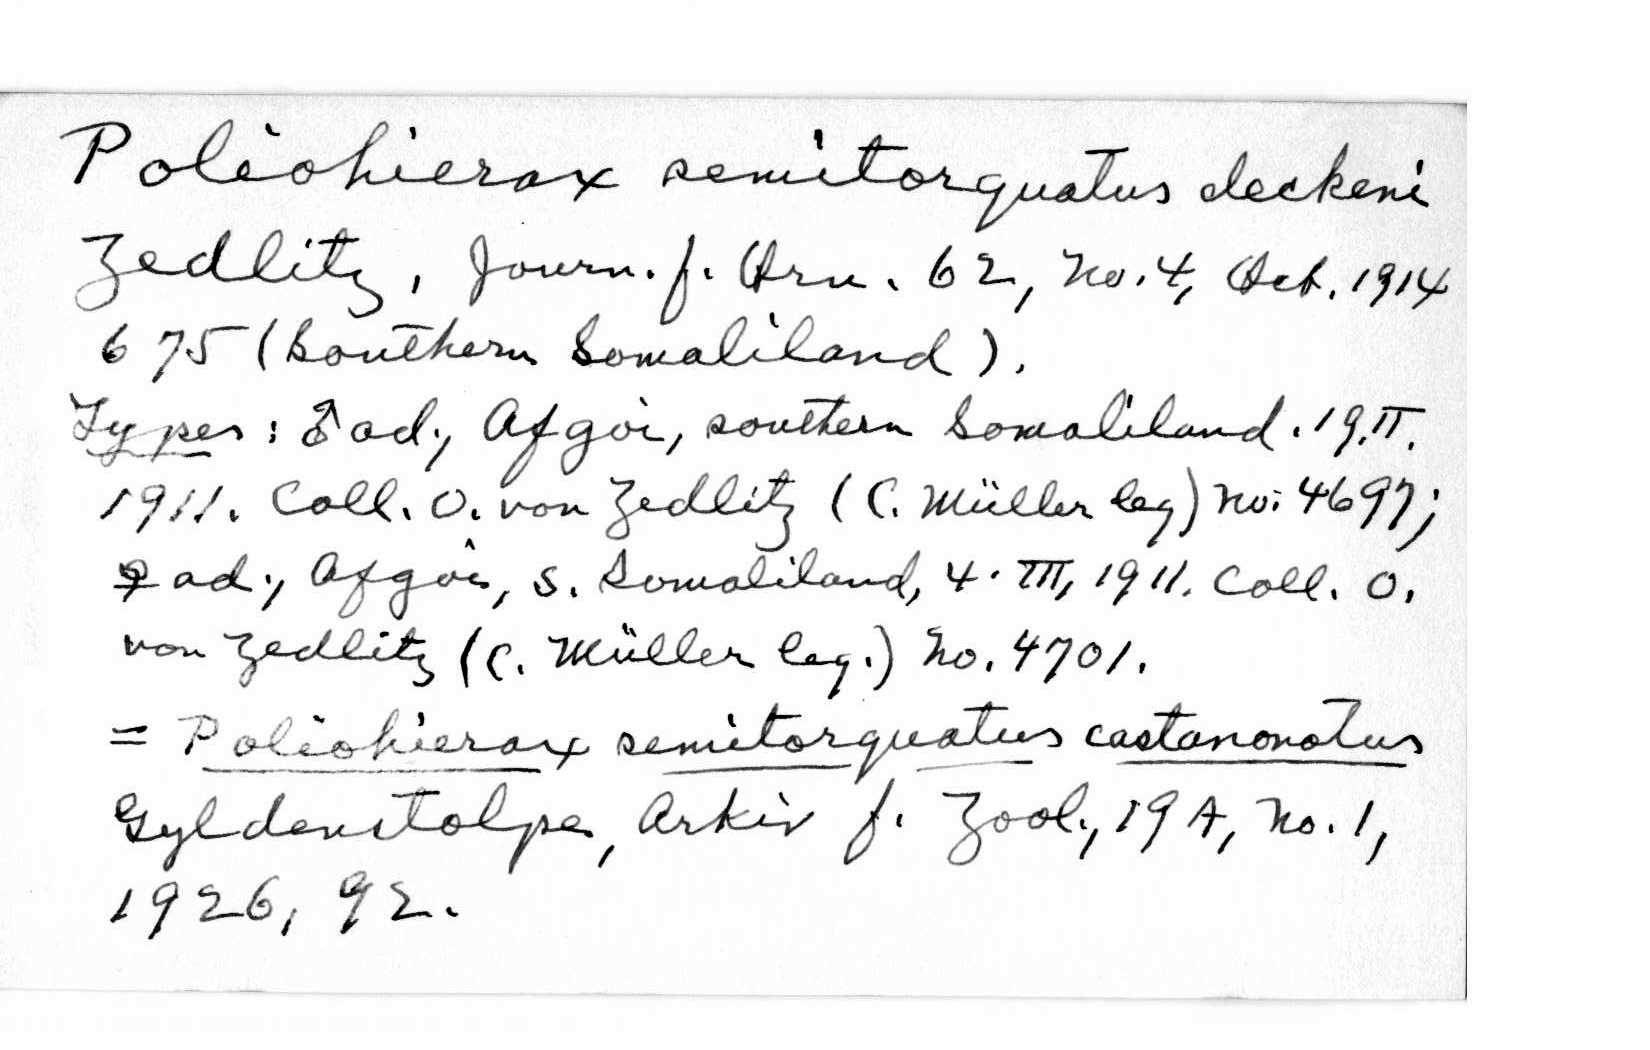 Poliohierax semitorquatus deckeni
Zedlitz, Journ. f. Orn. 62, No. 4, Oct. 1914
675 (Southern Somaliland).
Types: ♂ ad., Afgoi, southern Somaliland. 19.II.
1911. Coll. O. von Zedlitz (C. Müller leg) No. 4697;
♀ ad., Afgoi, S. Somaliland, 4. III, 1911. Coll. O.
von Zedlitz (C. Müller leg.) No. 4701.
= Poliohierax semitorquatus castanonotus
Gyldenstolpe, Arkiv f. Zool., 19A, No. 1,
1926, 92.